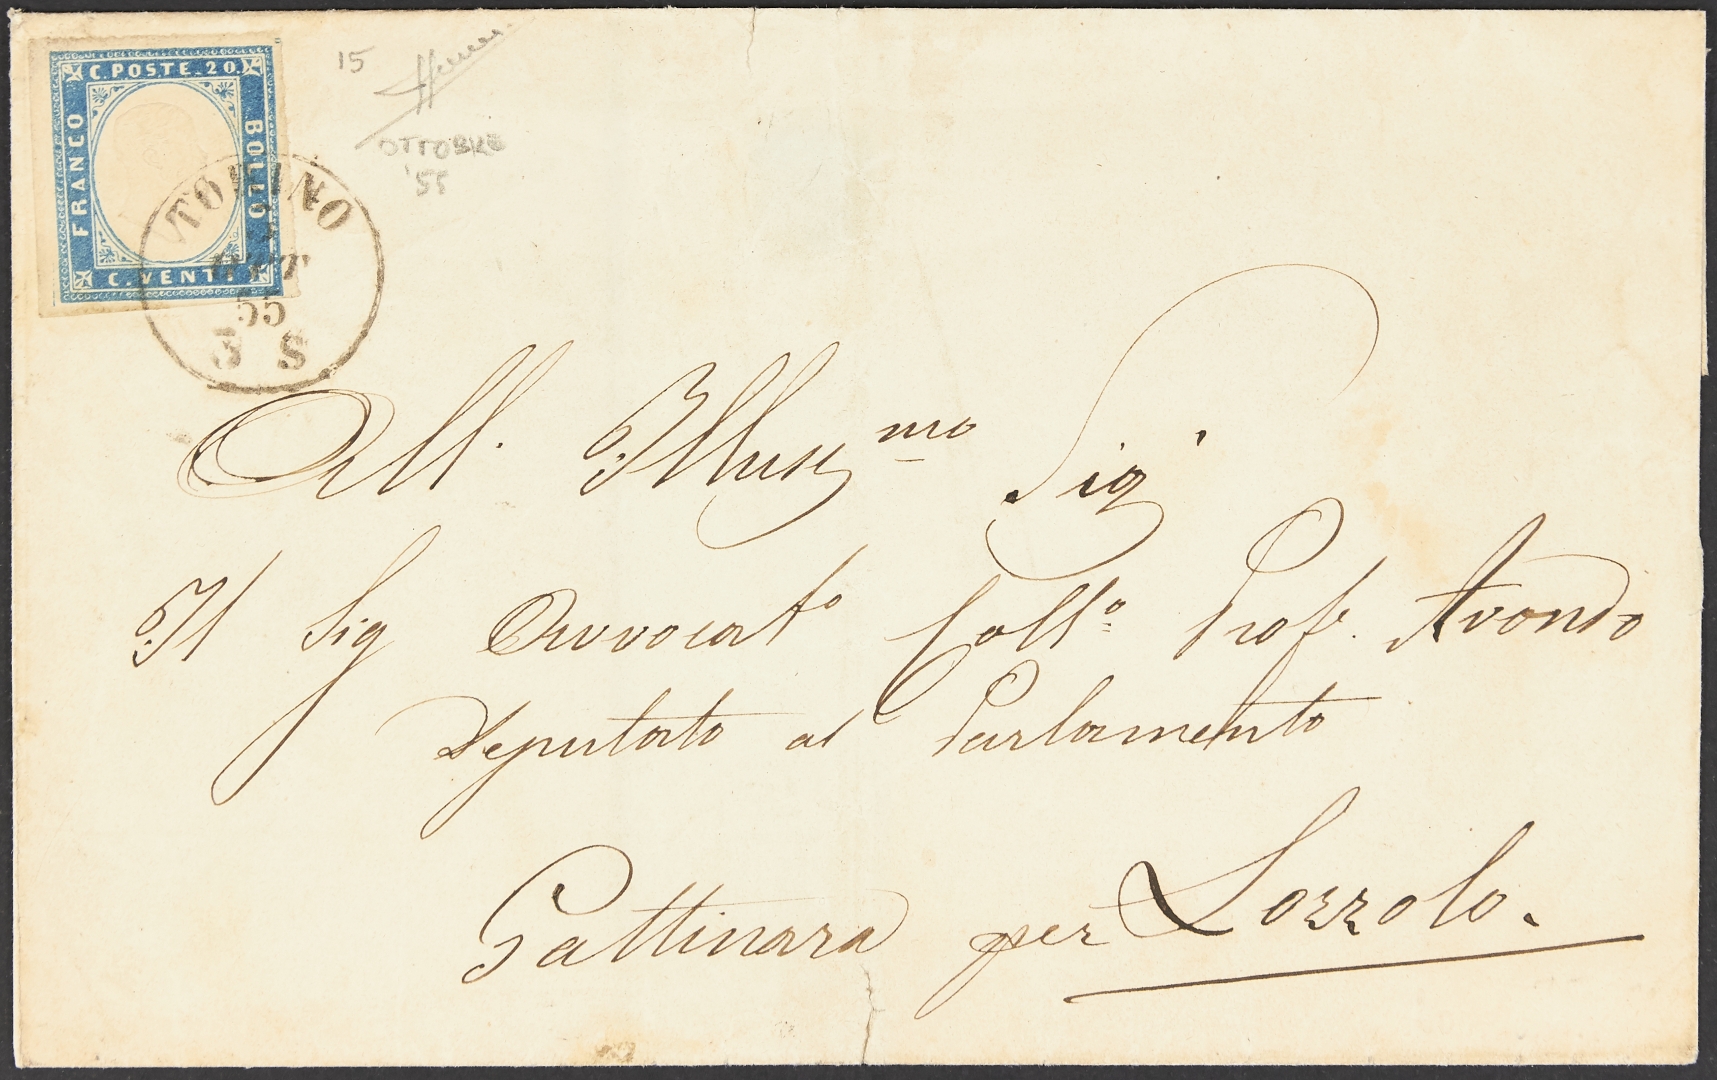 C. POSTE. 20.
FRANCO
BOLLO
C. VENTI
TORINO
OTT
55
3 S
15
OTTOBRE
'55
All. Illus.mo Sig.
Il Sig Avvocat.o Coll.o Prof. Avondo
Deputato al Parlamento
Gattinara per Lozzolo.